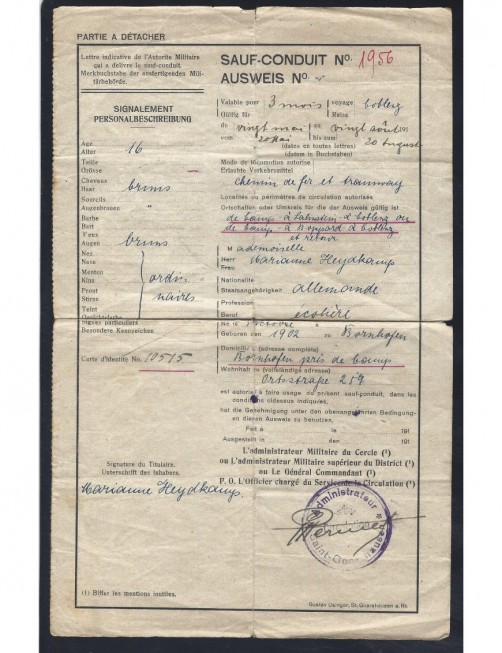 PARTIE A DÉTACHER
Lettre indicative de l'Autorite Militaire
qui a délivre le sauf-conduit.
Merkbuchstabe der ausfertigenden Mili-
tärbehörde.
SIGNALEMENT
PERSONALBESCHREIBUNG
Age
Alter 16
Taille
Grösse
Cheveux
Haar bruns
Sourcils
Augenbrauen
Barbe
Bart
Yeux
Augen bruns
Nez
Nase
Menton
Kinn
Front
Stirne
Teint
ordi
naires
Signes particuliers
Besondere Kennzeichen
Carte d'identite No. 10515
Signature du Titulaire.
Unterschrift des Inhabers.
Marianne Heydkamp.
(1) Biffer les mentions inutiles.
SAUF-CONDUIT No. 1956
AUSWEIS No.
Valable pour 3 mois voyage Coblenz
Gültig für Reise
du vingt mai au vingt août 191
vom 20 Mai bis zum 20 August
(dates en toutes lettres)
(daten in Buchstaben)
Mode de locomotion autorise
Erlaubte Verkehrsmittel
chemin de fer et tramway
Localités ou périmetres de circulation autorisés
Ortschaften oder Umkreis für die der Ausweis gültig ist
de Camp - à Lahnstein - à Coblenz ou
de Camp - à Boppard à Coblenz
et retour
Mademoiselle
Herr
Frau
Marianne Heydkamp
Nationalité
Staatsangehörigkeit allemande
Profession
Beruf écolière
Né le octobre
Geboren den 1902 zu Bornhofen
Domicilié (adresse complete)
Bornhofen près de Camp
Wohnhaft zu (vollständige adresse)
Ortsstraße 259
est autorisé à faire usage du présent sauf-conduit, dans les
conditions cidessus indiquées,
hat die Genehmigung unter den obenangeführten Bedingung-
en diesen Ausweis zu benutzen,
Fait à le 191
Ausgestellt in den 191
L'administrateur Militaire du Cercle (¹)
ou L'administrateur Militaire supérieur du District (¹)
ou Le Général Commandant (¹)
P. O. L'Officier chargé du Service de la Circulation (¹)
Administrateur
Saint-Goarshausen
Gustav Usinger, St. Goarshausen a. Rh.